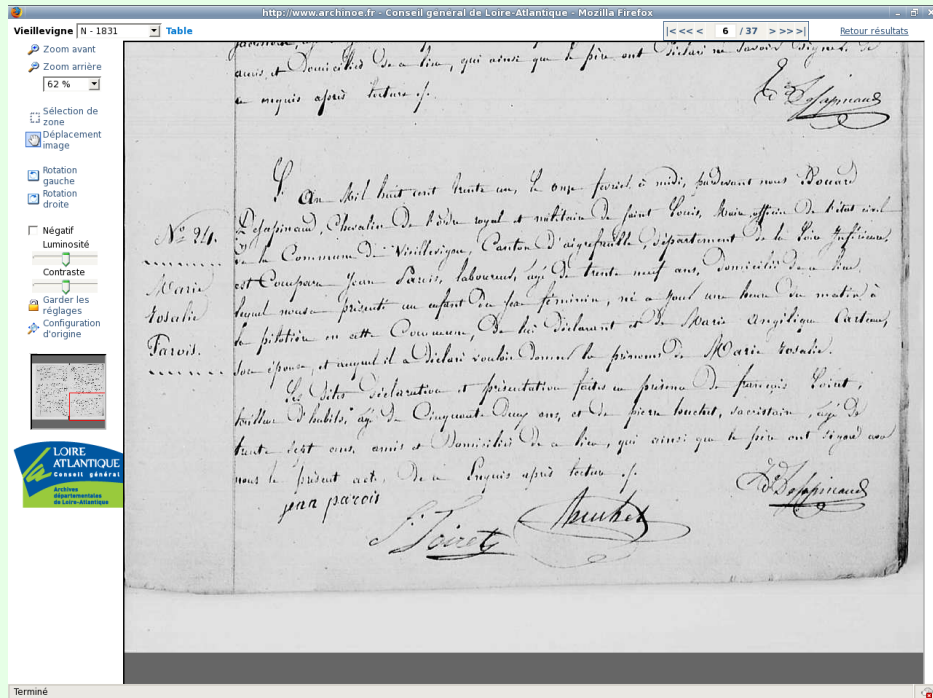 http://www.archinoe.fr - Conseil general de Loire-Atlantique - Mozilla Firefox
Vieillevigne N - 1831 Table
|< << < 6 / 37 > >> >|
Retour résultats
Zoom avant
Zoom arrière
62 %
Sélection de
zone
Déplacement
image
Rotation
gauche
Rotation
droite
Négatif
Luminosité
Contraste
Garder les
réglages
Configuration
d'origine
LOIRE
ATLANTIQUE
Conseil général
Archives
départementales
de Loire-Atlantique
amis et Domiciliés de ce lieu, qui ainsi que le père ont déclaré ne savoir signer, de
ce requis après lecture
L'An Mil huit cent trente un, le onze février à midi, pardevant nous Edouard
Desapinaud, Chevalier de l'ordre royal et militaire de Saint Louis, Maire officier de l'état civil
de la Commune de Vieillevigne, Canton d'aigrefeuille, département de la Loire Inférieure,
est Comparu Jean Parois, laboureur, âgé de trente neuf ans, Domicilié de ce lieu
lequel nous a présenté un enfant du sexe féminin, né ce jour une heure du matin à
la pilotière en cette Commune, De lui Déclarant et de Marie Angélique
son épouse, et auquel il a déclaré vouloir donner les prénoms De Marie Rosalie.
Les dites déclaration et présentation faites en présence De françois Loiret,
tailleur d'habits, âgé de Cinquante Deux ans, et de pierre huchet, sacristain, âgé de
trente sept ans, amis et Domiciliés de ce lieu, qui ainsi que le père ont signé avec
nous le présent acte, De ce Requis après lecture
No 24.
Marie
Rosalie
Parois.
jean parois
Loiret
huchet
Ed Desapinaud
Terminé